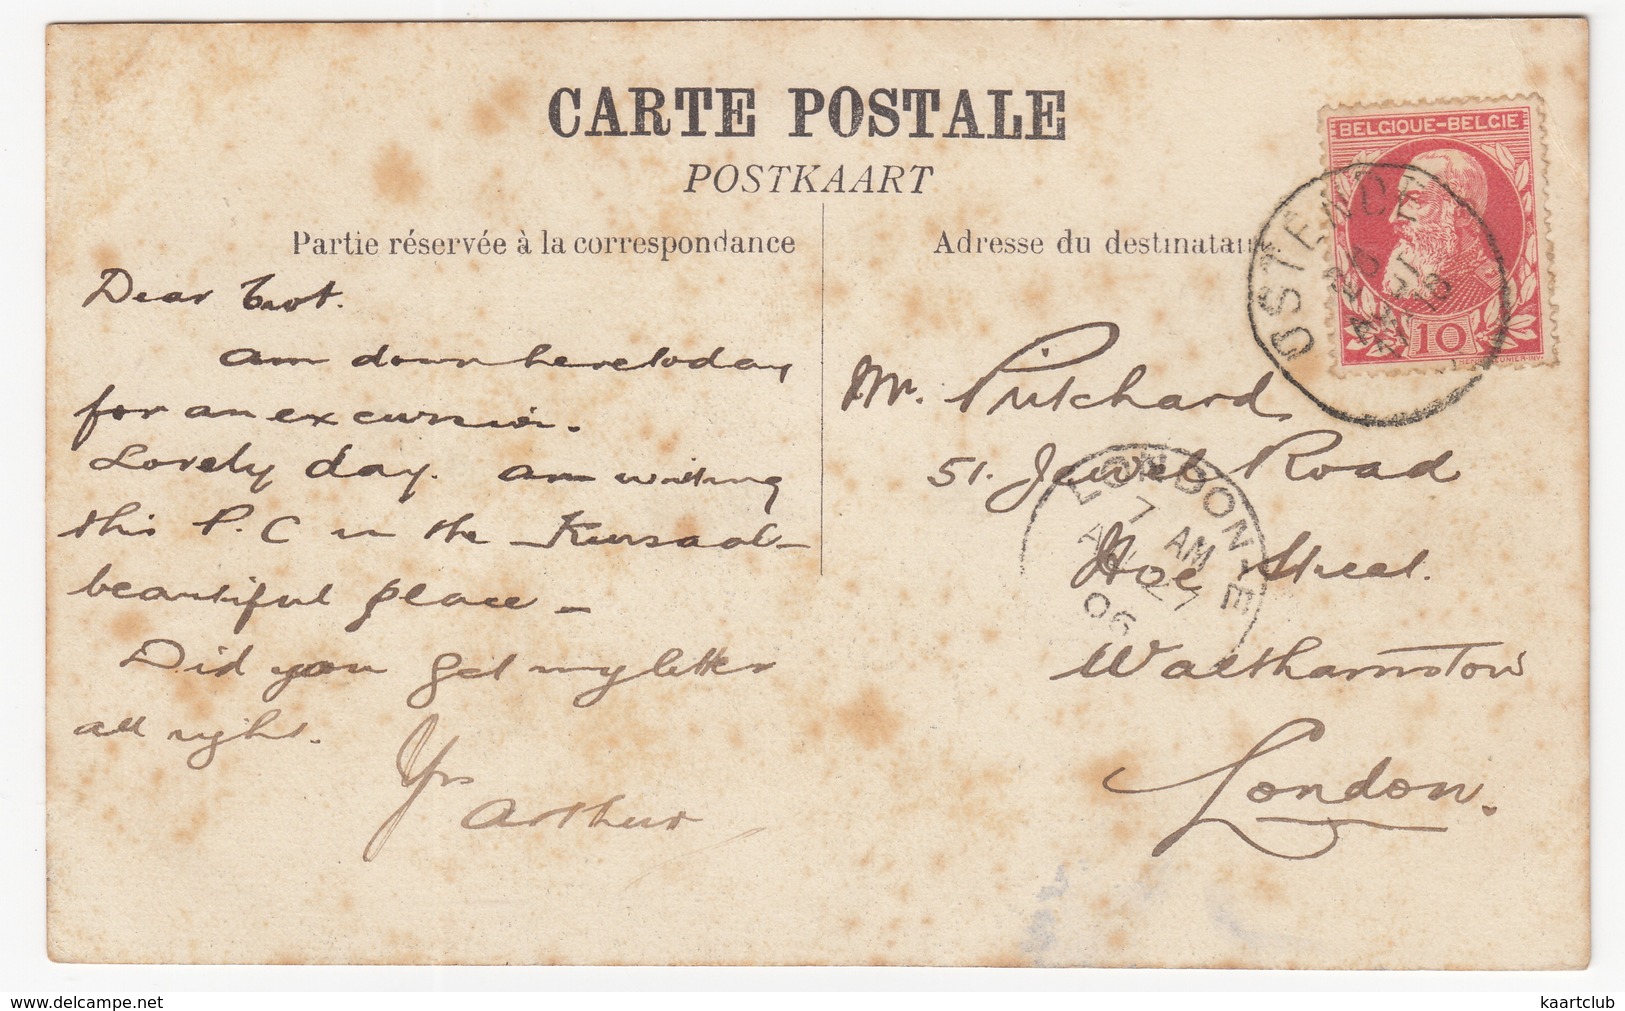 CARTE POSTALE
POSTKAART
Partie réservée à la correspondance
Adresse du destinatai
BELGIQUE-BELGIE
10
OSTENDE
Dear Trot.
am down here today
for an excursion.
Lovely day. am writing
this P.C in the Kursaal–
beautiful place –
Did you get my letter
all right.
Yrs
Arthur
Mr. Pritchard
51. Jewel Road
Hoe Street.
Walthamstow
London.
LONDON-E
7 AM
AU 27
06
www.delcampe.net
kaartclub